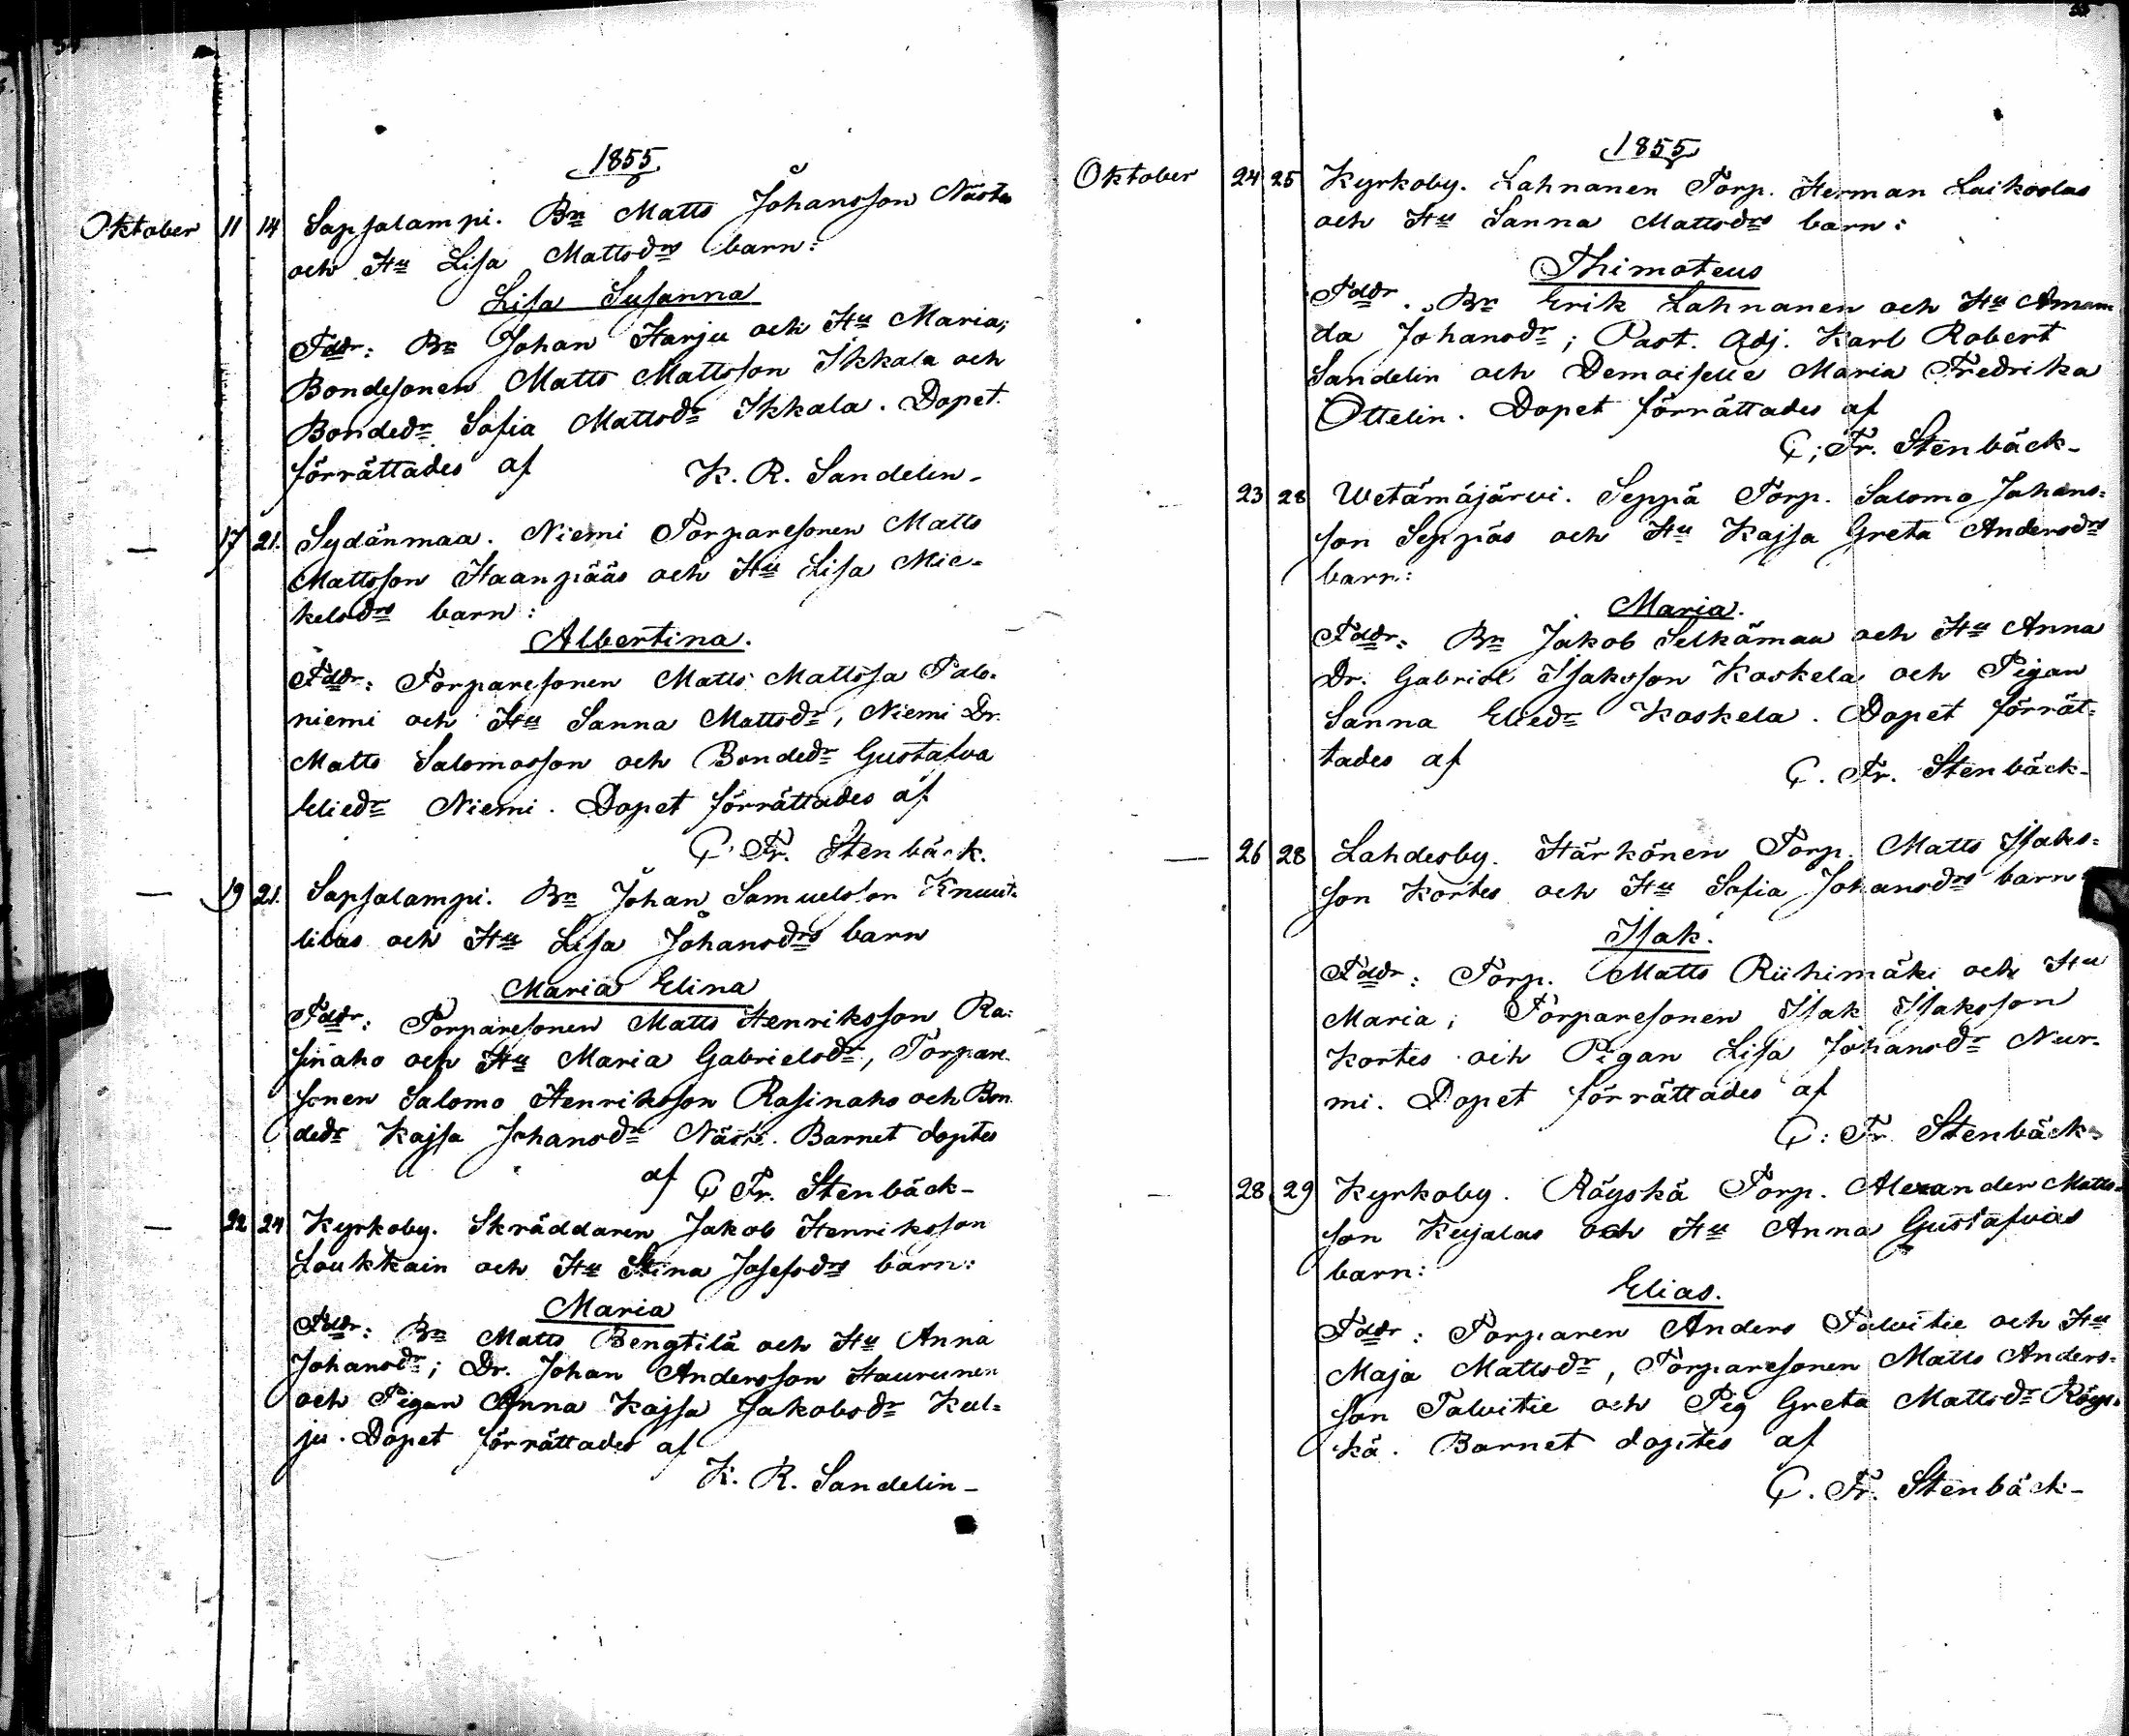 1855
Oktober 11 14 Sapsalampi. Bn Matts Johansson Näses
och Hu Lisa Mattsdrs barn:
Lisa Susanna
Fddr: Bn Johan Harju och Hu Maria;
Bondesonen Matts Mattsson Ikkala och
Bondedr Sofia Mattsdr Ikkala. Dopet
förrättades af K. R. Sandelin_
— 17 21. Sydänmaa. Niemi Torparesonen Matts
Mattsson Haanpääs och Hu Lisa Mic=
kelsdrs barn:
Albertina.
Fddr: Torparesonen Matts Mattssa Palo-
niemi och Hu Sanna Mattsdr, Niemi Dr.
Matts Salomosson och Bondedr Gustafva
Eliedr Niemi. Dopet förrättades af
C. Fr. Stenbäck.
— 19 21. Sapsalampi. Bn Johan Samuelsson Knuut-
tilas och Hu Lisa Johansdrs barn
Maria Elina
Fddr: Torparesonen Matts Henriksson Ra-
sinaho och Hu Maria Gabrielsdr, Torpare-
sonen Salomo Henriksson Rasinaho och Bon
dedr Kajsa Johansdr Barnet döptes
af C Fr. Stenbäck_
— 22 24 Kyrkoby. Skräddaren Jakob Henriksson
Loukkain och Hu Stina Josefsdrs barn:
Maria
Fddr: Bn Matts Bengtilä och Hu Anna
Johansdr; Dr. Johan Andersson Haurunen
och Pigan Anna Kajsa Jakobsdr Kul=
ju. Dopet förrättades af
K. R. Sandelin_
1855
Oktober 24 25 Kyrkoby. Lahnanen Torp. Herman Laikolas
och Hu Sanna Mattsdrs barn:
Thimoteus
Fddr. Bn Erik Lahnanen och Hu Aman
da Johansdr; Past. Adj. Karl Robert
Sandelin och Demoiselle Maria Fredrika
Ottelin. Dopet förrättades af
C. Fr. Stenbäck_
— 23 28 Wetämäjärvi. Seppä Torp. Salomo Johans=
son Seppäs och Hu Kajsa Greta Andersdrs
barn:
Maria.
Fddr: Bn Jakob Selkämaa och Hu Anna
Dr. Gabriel Isaksson Koskela och Pigan
Sanna Eliedr Koskela. Dopet förrät=
tades af
C. Fr. Stenbäck_
— 26 28 Lahdesby. Härkönen Torp. Matts Isaks=
son Kortes och Hu Sofia Johansdrs barn
Isak.
Fddr: Torp. Matts Riihimäki och Hu
Maria; Torparesonen Isak Isaksson
Kortes och Pigan Lisa Johansdr Nur-
mi. Dopet förrättades af
C. Fr. Stenbäck
— 28 29 Kyrkoby. Röyskä Torp. Alexander Matts-
son Keijalas och Hu Anna Gustafvas
barn:
Elias.
Fddr: Torparen Anders Talvitie och Hu
Maja Mattsdr, Torparesonen Matts Anders=
son Talvitie och Pig Greta Mattsdr Röys-
kä. Barnet döptes af
C. Fr. Stenbäck_